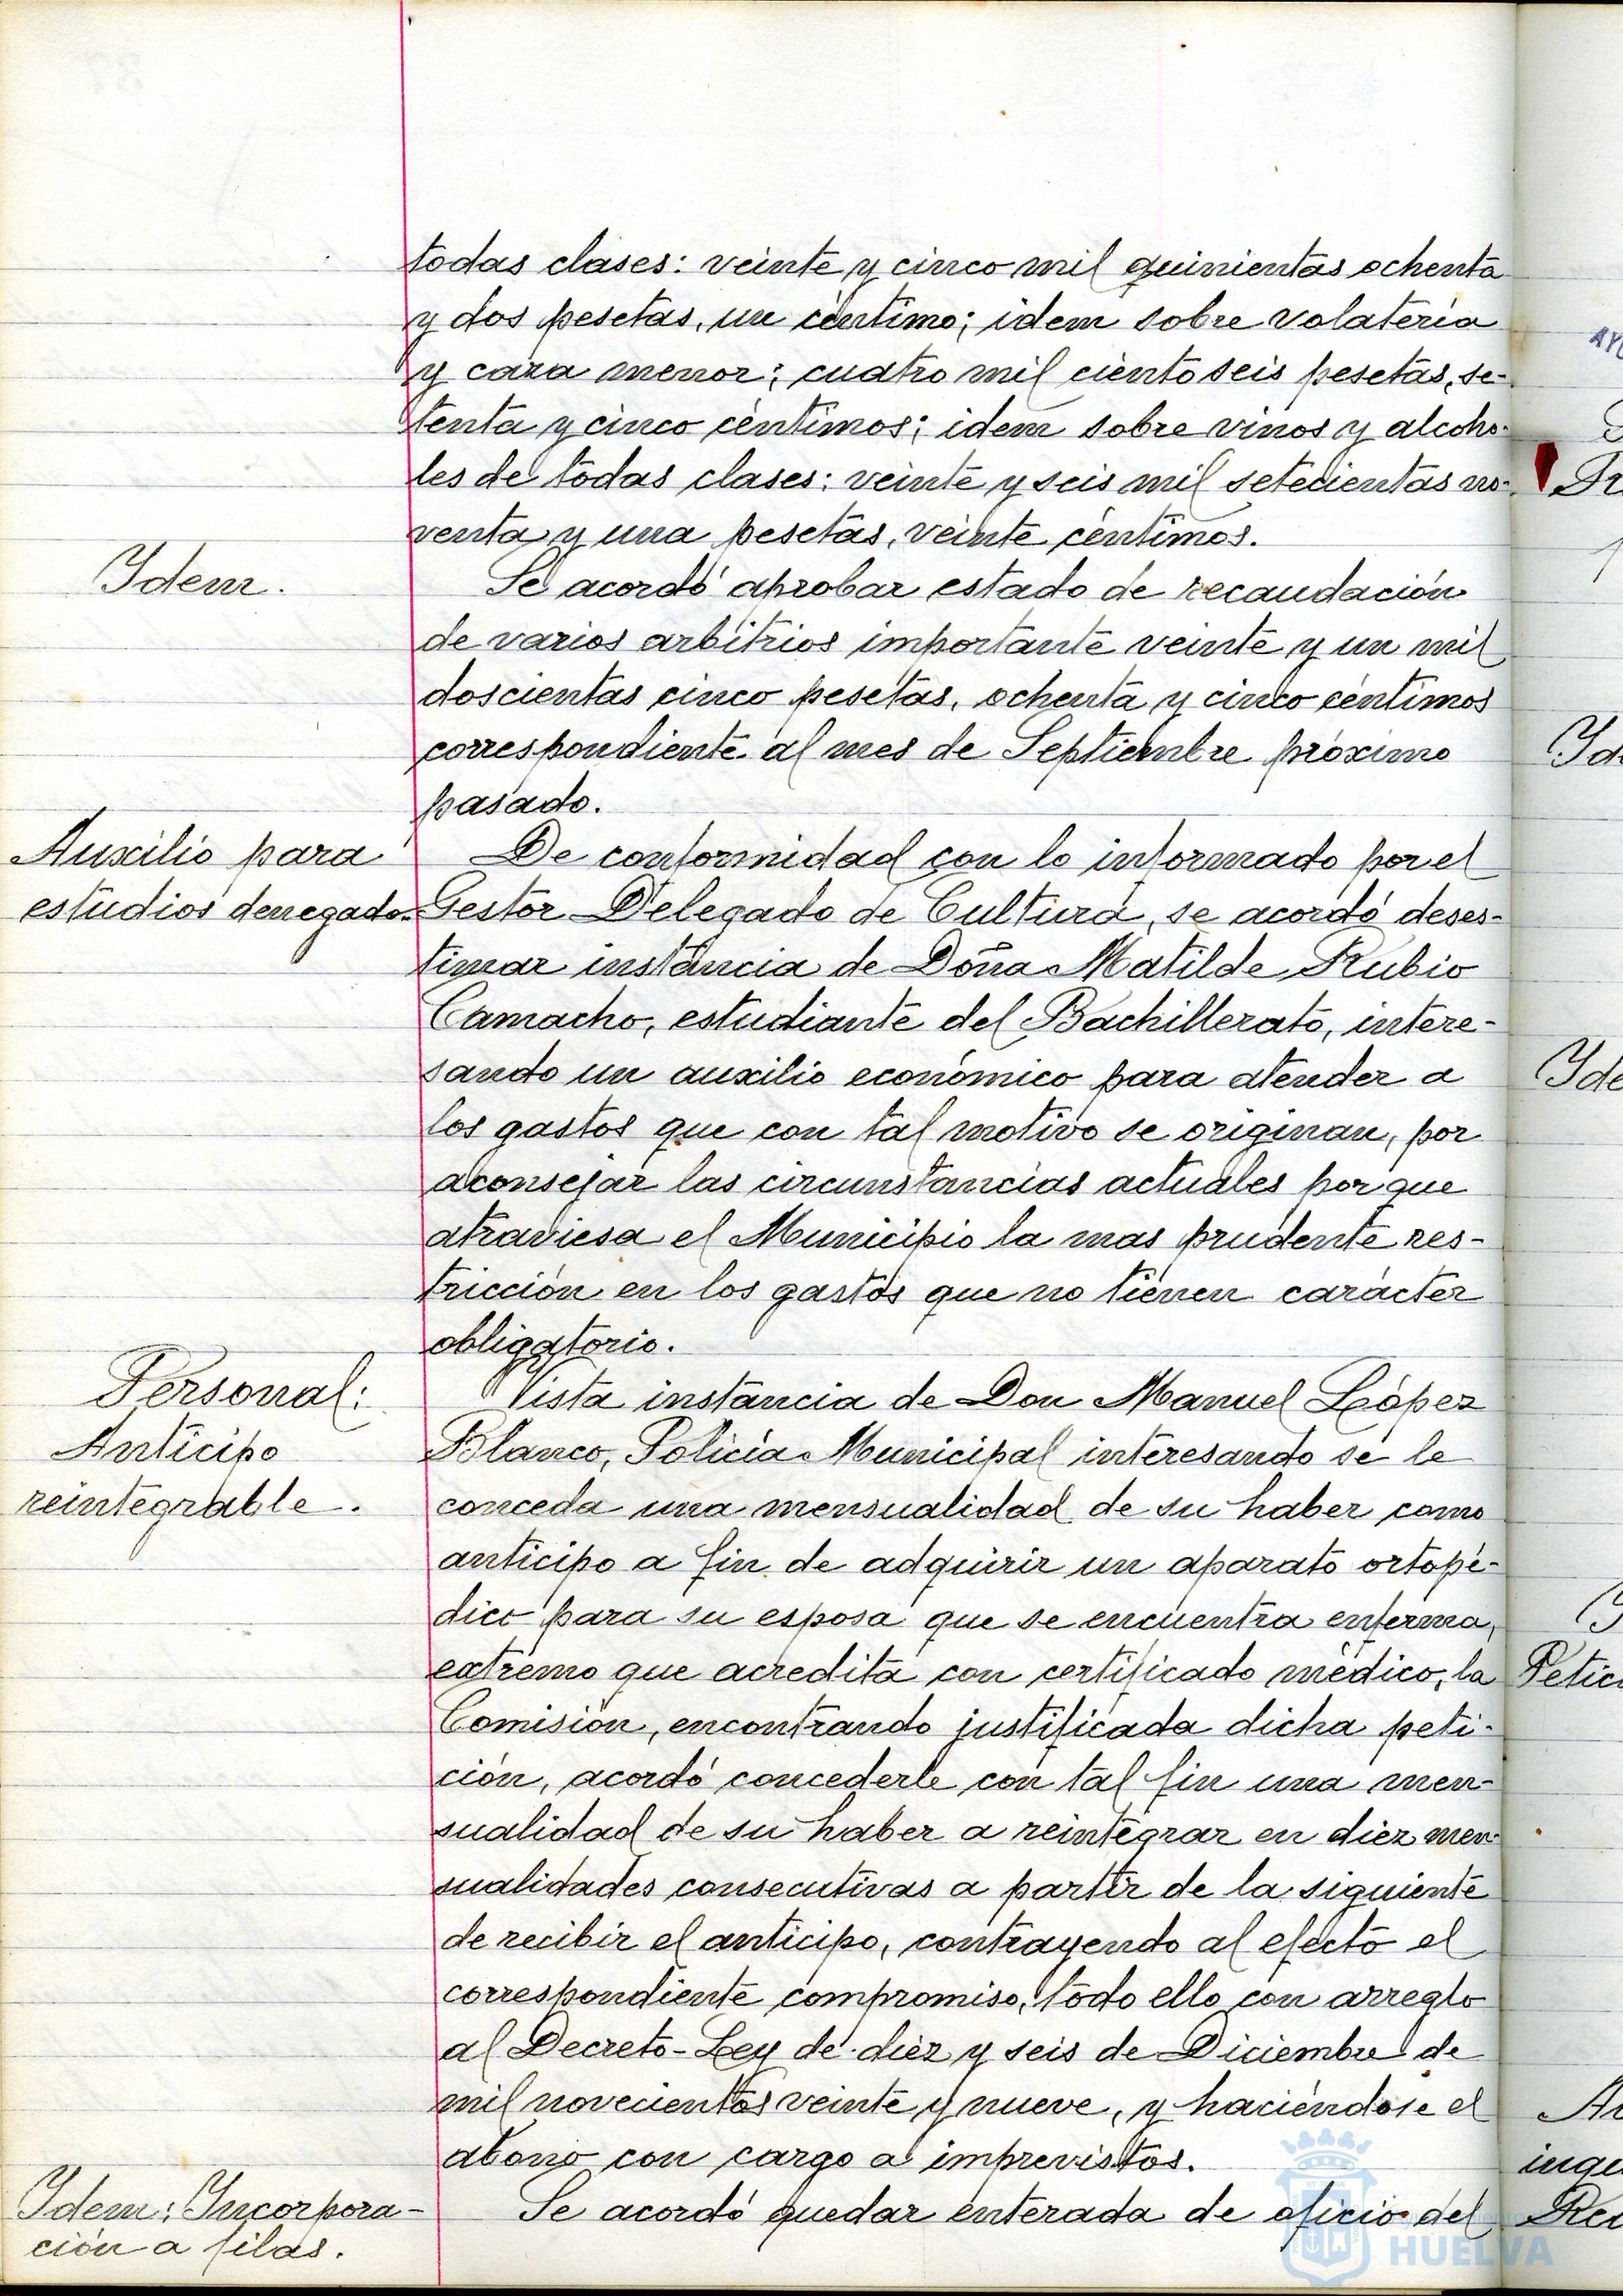 todas clases: veinte y cinco mil quinientas ochenta
y dos pesetas, un céntimo; idem sobre volatería
y caza menor: cuatro mil ciento seis pesetas, se-
tenta y cinco céntimos; idem sobre vinos y alcoho-
les de todas clases: veinte y seis mil setecientas no-
venta y una pesetas, veinte céntimos.
Idem.
Se acordó aprobar estado de recaudación
de varios arbitrios importante veinte y un mil
doscientas cinco pesetas, ochenta y cinco céntimos
correspondiente al mes de Septiembre próximo
pasado.
Auxilio para
estudios denegado.
De conformidad con lo informado por el
Gestor Delegado de Cultura, se acordó deses-
timar instancia de Doña Matilde Rubio
Camacho, estudiante del Bachillerato, intere-
sando un auxilio económico para atender a
los gastos que con tal motivo se originan, por
aconsejar las circunstancias actuales por que
atraviesa el Municipio la mas prudente res-
tricción en los gastos que no tienen carácter
obligatorio.
Personal:
Anticipo
reintegrable.
Vista instancia de Don Manuel López
Blanco, Policía Municipal interesando se le
conceda una mensualidad de su haber como
anticipo a fin de adquirir un aparato ortopé-
dico para su esposa que se encuentra enferma,
extremo que acredita con certificado médico, la
Comisión, encontrando justificada dicha peti-
ción, acordó concederle con tal fin una men-
sualidad de su haber a reintegrar en diez men-
sualidades consecutivas a partir de la siguiente
de recibir el anticipo, contrayendo al efecto el
correspondiente compromiso, todo ello con arreglo
al Decreto-Ley de diez y seis de Diciembre de
mil novecientos veinte y nueve, y haciéndose el
abono con cargo a imprevistos.
Idem: Incorpora-
ción a filas.
Se acordó quedar enterada de oficio del
HUELVA